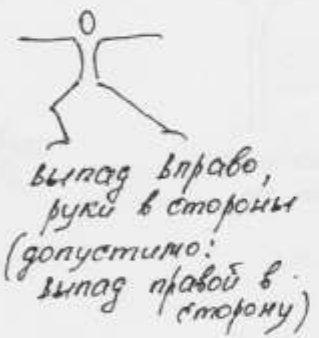 выпад вправо,
руки в стороны
(допустимо:
выпад правой в
сторону)